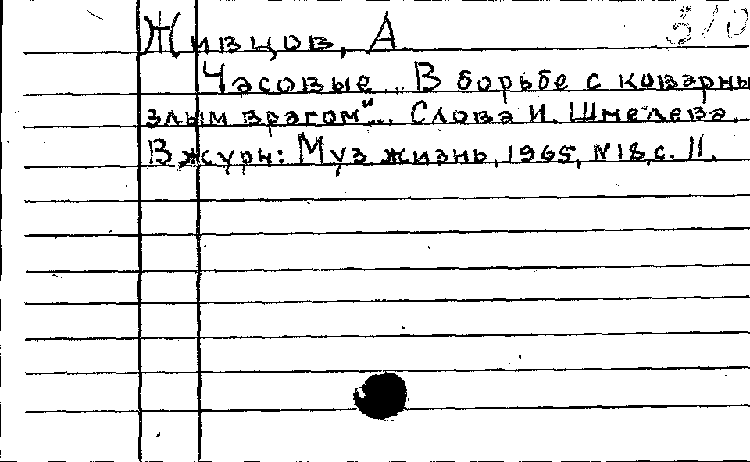 Живцов, А
Часовые „В борьбе с коварны
злым врагом"... Слова И. Шмелева.
В журн: Муз жизнь, 1965, N18, с. 11.